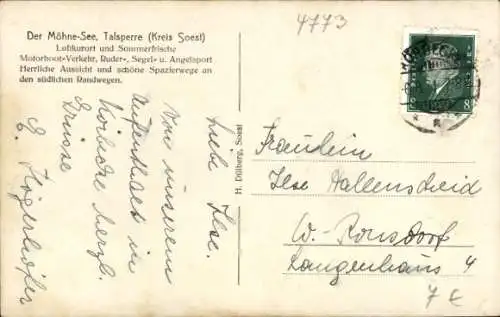 4773
Der Möhne-See, Talsperre (Kreis Soest)
Luftkurort und Sommerfrische
Motorboot-Verkehr, Ruder-, Segel- u. Angelsport
Herrliche Aussicht und schöne Spazierwege an
den südlichen Randwegen.
H. Dülberg, Soest
Liebe Ilse.
Von unserem
Aufenthalt in
Körbecke herzl.
Grüsse
E. Högerhöfer
8
Fräulein
Ilse Hallenscheid
W.-Ronsdorf
Langenhaus 4
7 €